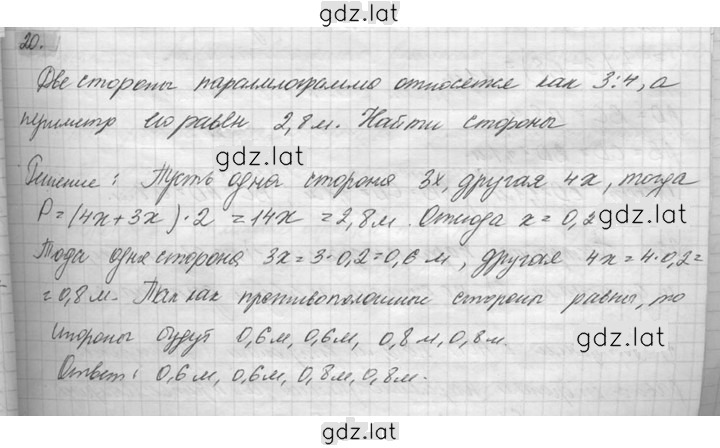 gdz.lat
20.
Две стороны параллелограмма относятся как 3:4, а
периметр его равен 2,8 м. Найти стороны
gdz.lat
Решение: Пусть одна сторона 3x, другая 4x, тогда
P = (4x+3x)·2 = 14x = 2,8 м. Отсюда x = 0,2
gdz.lat
Тогда одна сторона 3x = 3·0,2 = 0,6 м, другая 4x = 4·0,2 =
= 0,8 м. Так как противоположные стороны равны, то
стороны будут 0,6 м, 0,6 м, 0,8 м, 0,8 м.
gdz.lat
gdz.lat
Ответ: 0,6 м, 0,6 м, 0,8 м, 0,8 м.
gdz.lat